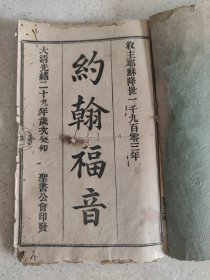 救主耶穌降世一千九百零三年
約翰福音
大清光緒二十九年歲次癸卯
聖書公會印發